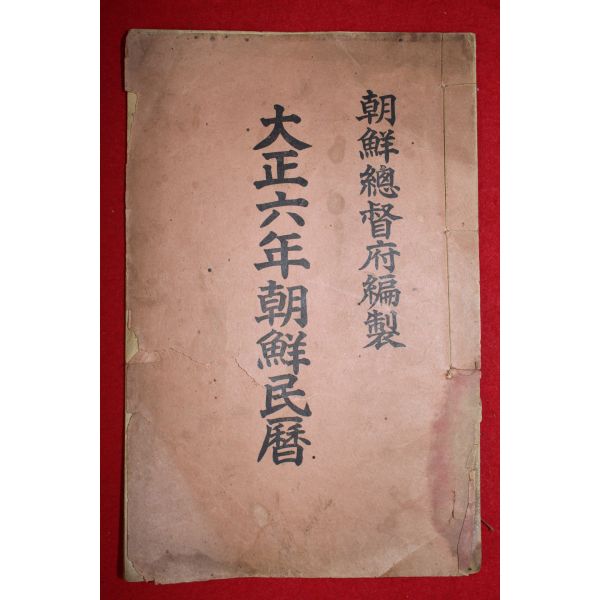 朝鮮總督府編製
大正六年朝鮮民曆